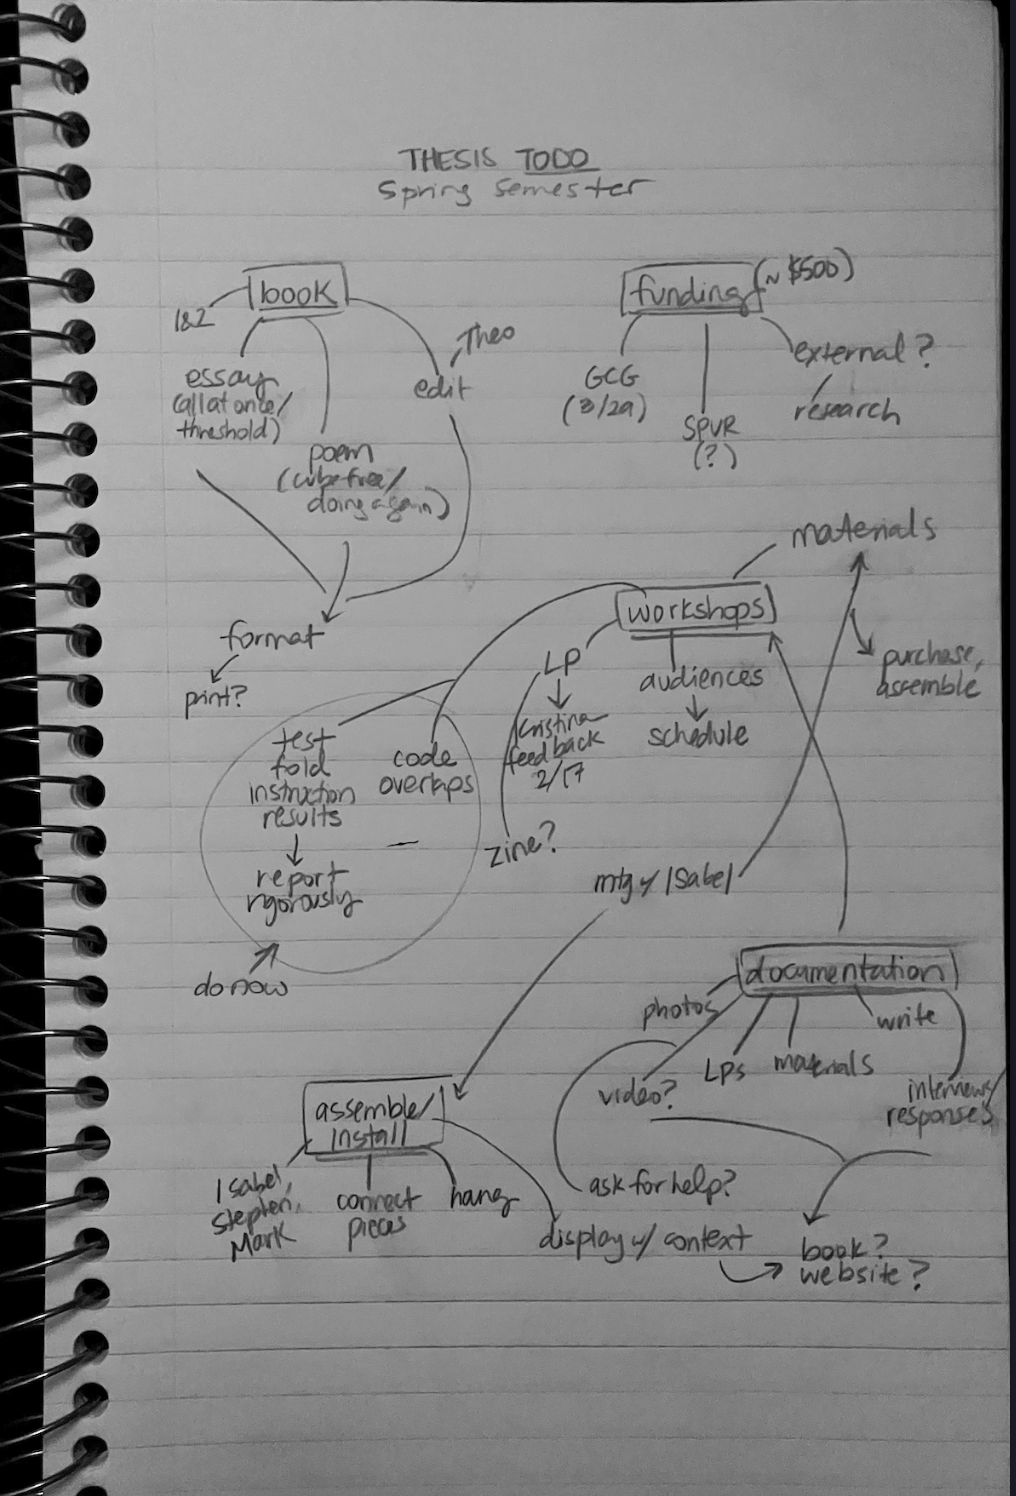 THESIS TODO
Spring Semester
book
1&2
essay
(all at once/
threshold)
poem
(cube free/
doing again)
edit
Theo
format
print?
funding (~ $500)
GCG
(3/29)
SPUR
(?)
external?
research
workshops
materials
purchase,
assemble
LP
Kristina
feedback
2/17
zine?
audiences
schedule
code
overlaps
test
fold
instruction
results
report
rigorously
do now
mtg w/ Isabel
documentation
photos
video?
LPs
materials
write
interviews/
responses
ask for help?
assemble/
install
Isabel,
Stephen,
Mark
connect
pieces
hang
display w/ context
book?
website?